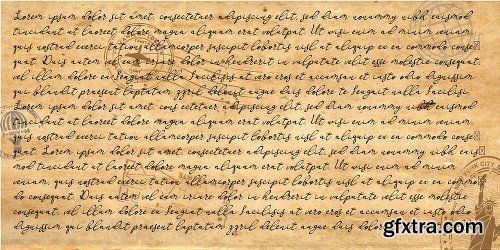 Lorem ipsum dolor sit amet, consectetuer adipiscing elit, sed diam nonummy nibh euismod
tincidunt ut laoreet dolore magna aliquam erat volutpat. Ut wisi enim ad minim veniam,
quis nostrud exerci tation ullamcorper suscipit lobortis nisl ut aliquip ex ea commodo conse
quat. Duis autem dolor in hendrerit in vulputate velit esse molestie consequat,
vel illum dolore eu feugiat nulla facilisis at vero eros et accumsan et iusto odio dignissim
qui blandit praesent luptatum zzril delenit augue duis dolore te feugait nulla facilisi.
Lorem ipsum dolor sit amet, cons ectetuer adipiscing elit, sed diam nonummy nibh euismod
tincidunt ut laoreet dolore magna aliquam erat volutpat. Ut wisi enim ad minim veniam,
quis nostrud exerci tation ullamcorper suscipit lobortis nisl ut aliquip ex ea commodo conse
quat. Lorem ipsum dolor sit amet, consectetuer adipiscing elit, sed diam nonummy nibh euis
mod tincidunt ut laoreet dolore magna aliquam erat volutpat. Ut wisi enim ad minim
veniam, quis nostrud exerci tation ullamcorper suscipit lobortis nisl ut aliquip ex ea commo
do consequat. Duis autem vel eum iriure dolor in hendrerit in vulputate velit esse molestie
consequat, vel illum dolore eu feugiat nulla facilisis at vero eros et accumsan et iusto odio
dignissim qui blandit praesent luptatum zzril delenit augue duis dolore
gfxtra.com